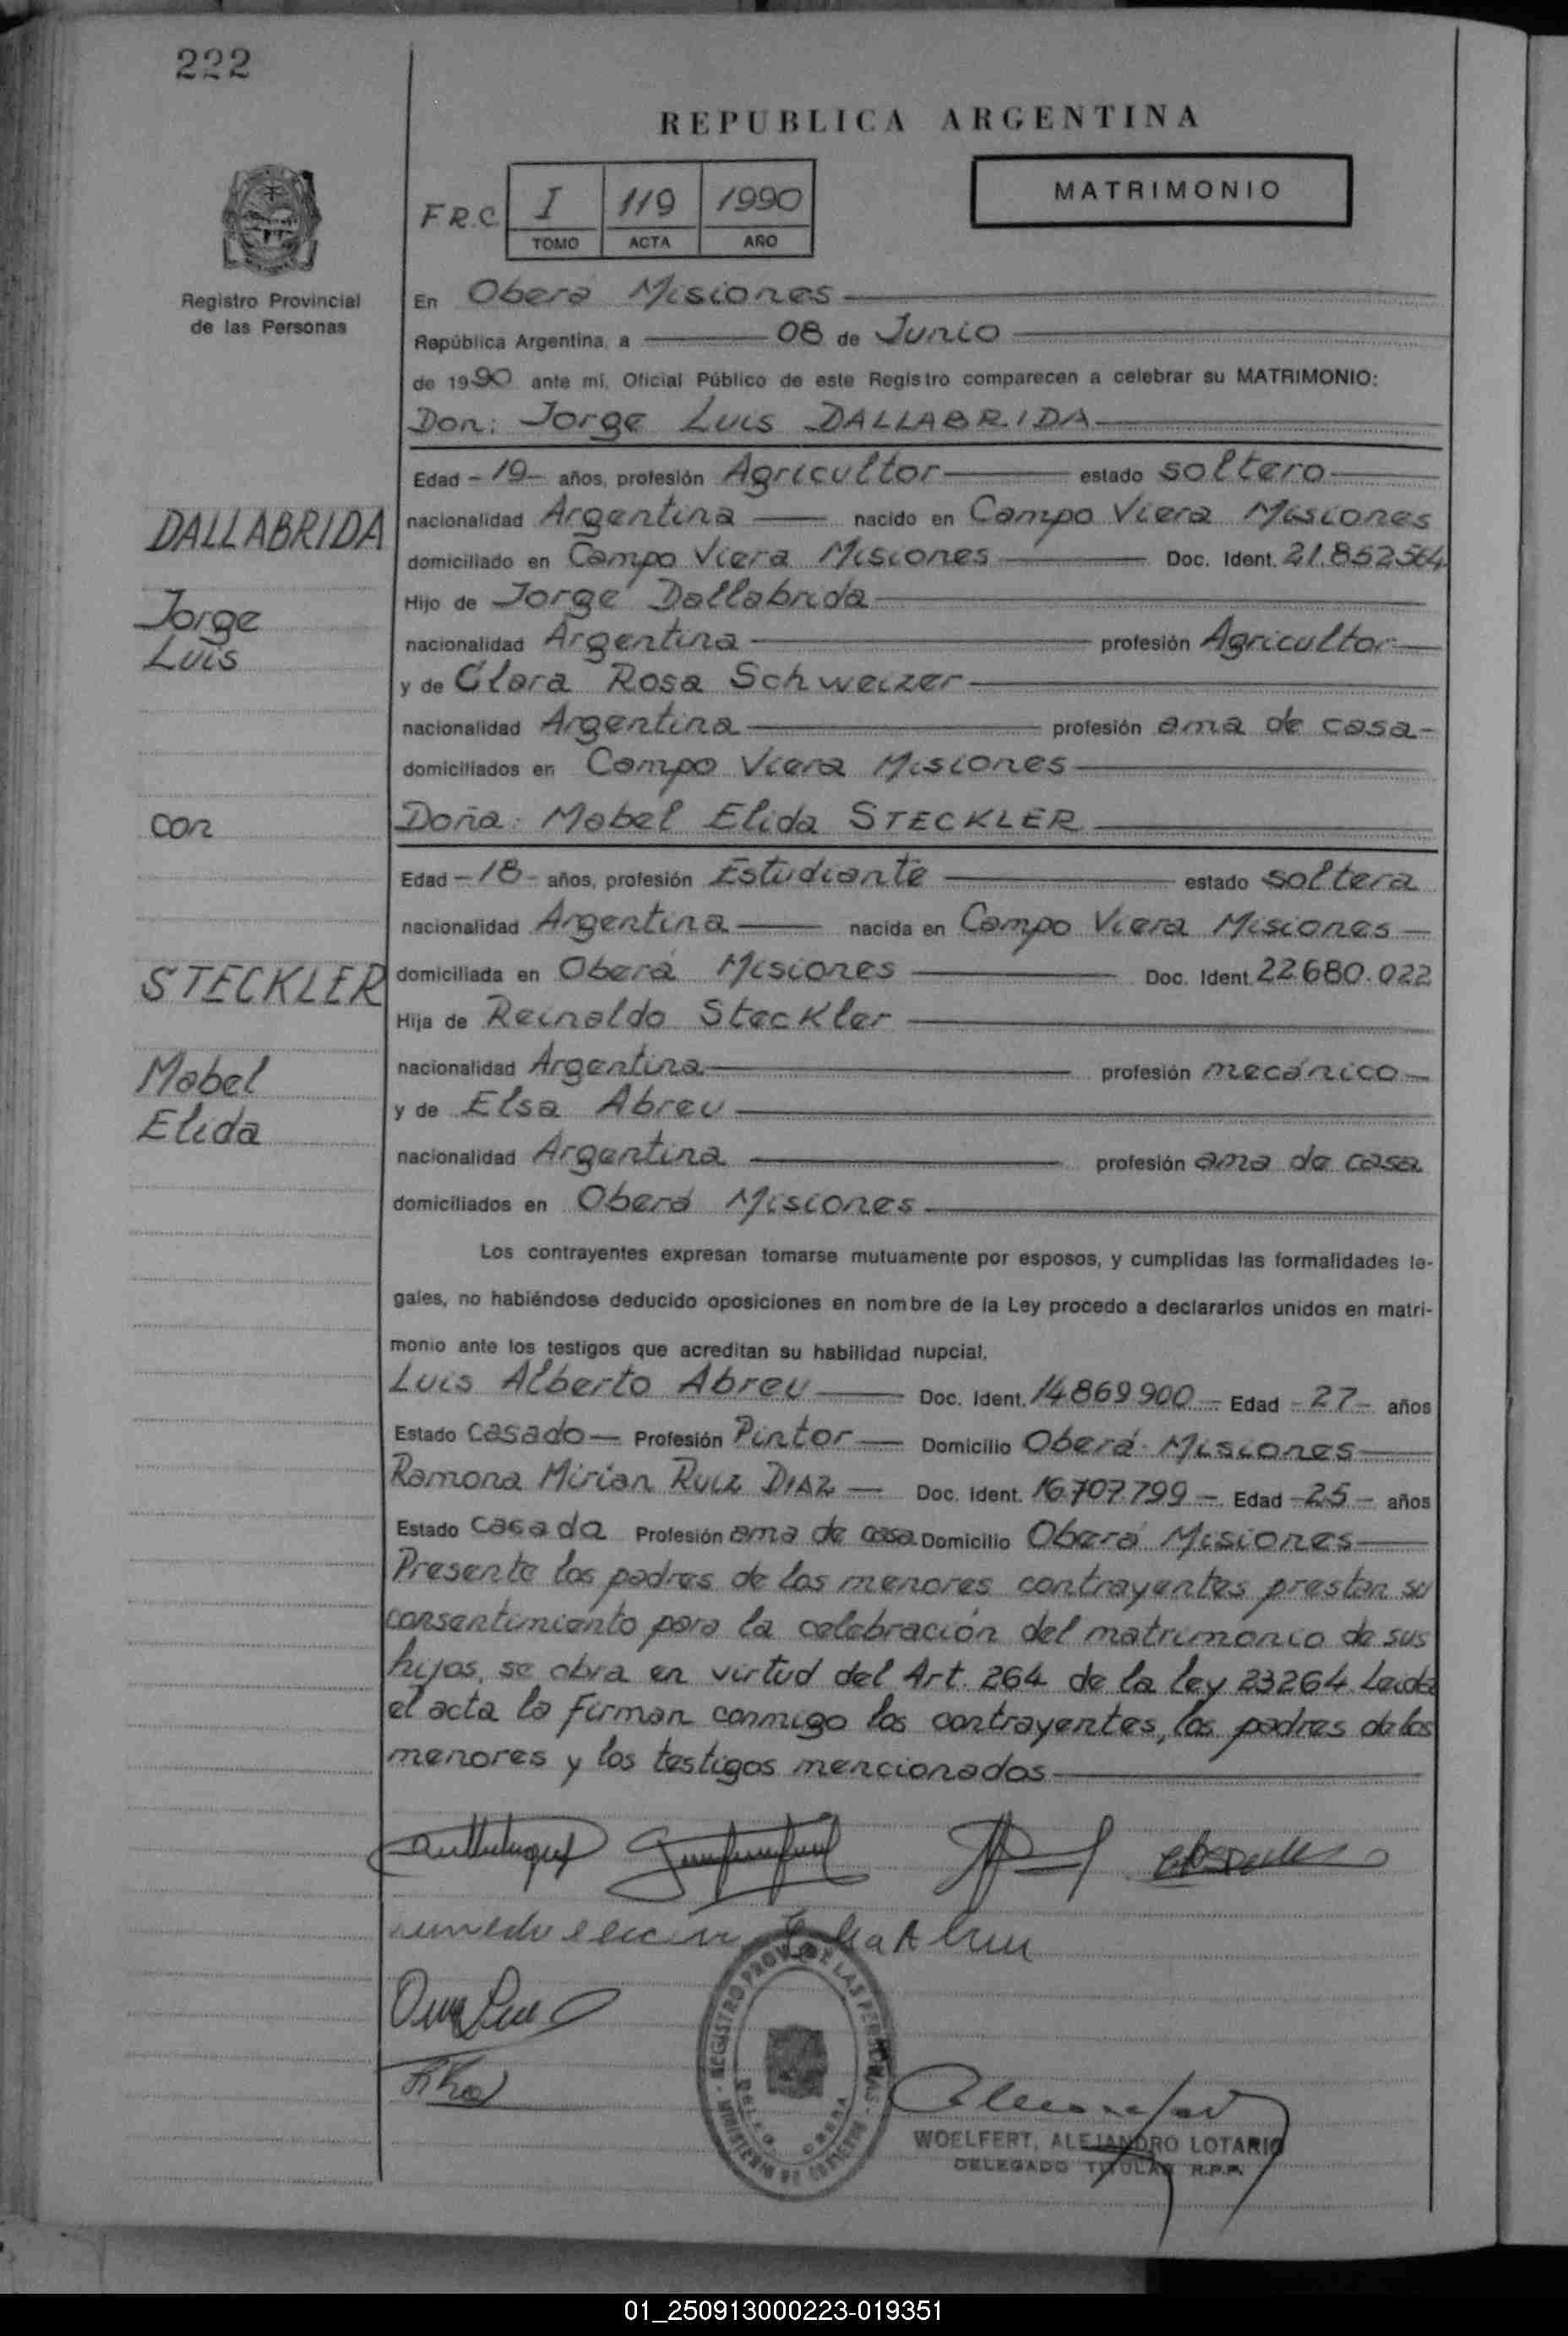 222
REPUBLICA ARGENTINA
MATRIMONIO
F.R.C. I 119 1990
TOMO ACTA AÑO
Registro Provincial
de las Personas
En Oberá Misiones
República Argentina, a 08 de Junio
de 1990 ante mí, Oficial Público de este Registro comparecen a celebrar su MATRIMONIO:
Don: Jorge Luis DALLABRIDA
Edad -19- años, profesión Agricultor estado soltero
DALLABRIDA
nacionalidad Argentina nacido en Campo Viera Misiones
domiciliado en Campo Viera Misiones Doc. Ident. 21.852564
Jorge
Luis
Hijo de Jorge Dallabrida
nacionalidad Argentina profesión Agricultor
y de Clara Rosa Schweizer
nacionalidad Argentina profesión ama de casa-
domiciliados en Campo Viera Misiones
con
Doña: Mabel Elida STECKLER
Edad -18- años, profesión Estudiante estado soltera
nacionalidad Argentina nacida en Campo Viera Misiones
STECKLER
domiciliada en Oberá Misiones Doc. Ident. 22.680.022
Hija de Reinaldo Steckler
Mabel
Elida
nacionalidad Argentina profesión mecánico
y de Elsa Abreu
nacionalidad Argentina profesión ama de casa
domiciliados en Oberá Misiones
Los contrayentes expresan tomarse mutuamente por esposos, y cumplidas las formalidades le-
gales, no habiéndose deducido oposiciones en nombre de la Ley procedo a declararlos unidos en matri-
monio ante los testigos que acreditan su habilidad nupcial.
Luis Alberto Abreu Doc. Ident. 14.869.900 Edad -27- años
Estado Casado Profesión Pintor Domicilio Oberá Misiones
Ramona Mirian RUIZ DIAZ Doc. Ident. 16.707.799 Edad -25- años
Estado casada Profesión ama de casa Domicilio Oberá Misiones
Presente los padres de los menores contrayentes prestan su
consentimiento para la celebración del matrimonio de sus
hijos, se obra en virtud del Art. 264 de la ley 23264. Leída
el acta la firman conmigo los contrayentes, los padres de los
menores y los testigos mencionados
Elsa Abreu
REGISTRO PROV. DE LAS PERSONAS
MINISTERIO DE GOBIERNO
DELEG. OBERA
WOELFERT, ALEJANDRO LOTARIO
DELEGADO TITULAR R.P.P.
01_250913000223-019351